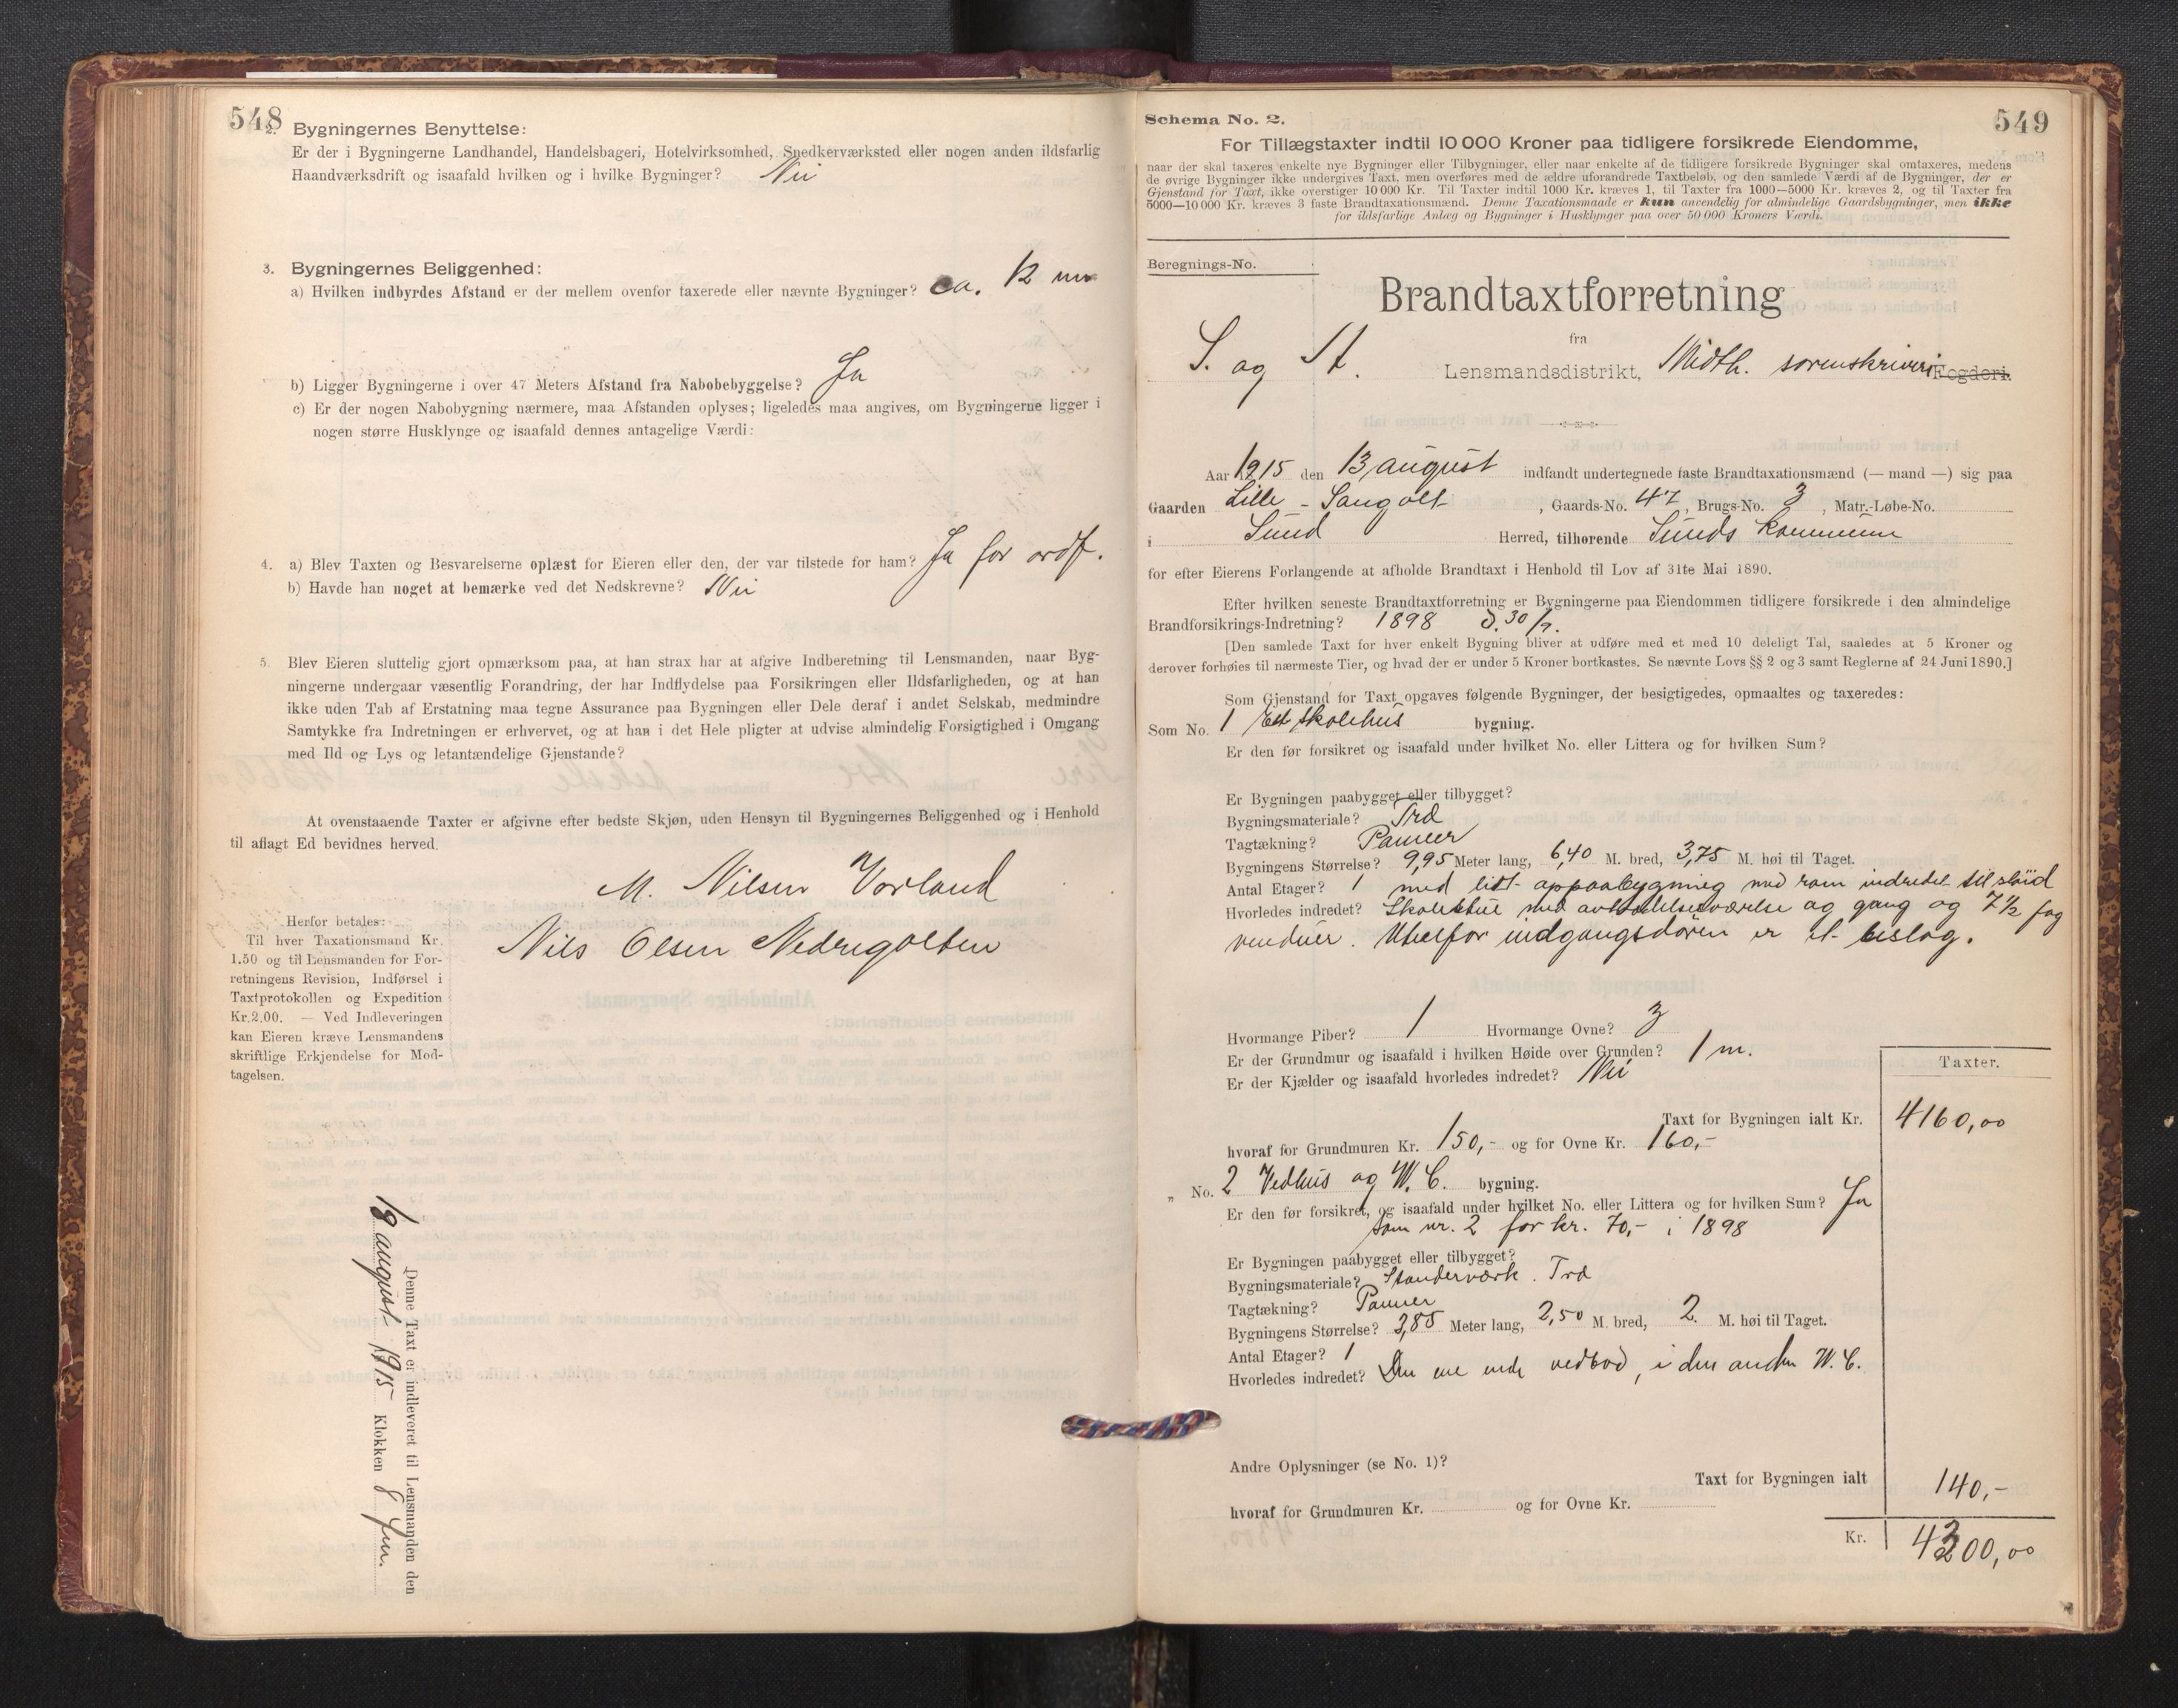 548
2. Bygningernes Benyttelse:
Er der i Bygningerne Landhandel, Handelsbageri, Hotelvirksomhed, Snedkerværksted eller nogen anden ildsfarlig
Haandværksdrift og isaafald hvilken og i hvilke Bygninger? Nei
3. Bygningernes Beliggenhed:
a) Hvilken indbyrdes Afstand er der mellem ovenfor taxerede eller nævnte Bygninger? ca. 12 m
b) Ligger Bygningerne i over 47 Meters Afstand fra Nabobebyggelse? Ja
c) Er der nogen Nabobygning nærmere, maa Afstanden oplyses; ligeledes maa angives, om Bygningerne ligger i
nogen større Husklynge og isaafald dennes antagelige Værdi:
4. a) Blev Taxten og Besvarelserne oplæst for Eieren eller den, der var tilstede for ham? Ja for ordf.
b) Havde han noget at bemærke ved det Nedskrevne? Nei
5. Blev Eieren sluttelig gjort opmærksom paa, at han strax har at afgive Indberetning til Lensmanden, naar Byg-
ningerne undergaar væsentlig Forandring, der har Indflydelse paa Forsikringen eller Ildsfarligheden, og at han
ikke uden Tab af Erstatning maa tegne Assurance paa Bygningen eller Dele deraf i andet Selskab, medmindre
Samtykke fra Indretningen er erhvervet, og at han i det Hele pligter at udvise almindelig Forsigtighed i Omgang
med Ild og Lys og letantændelige Gjenstande?
At ovenstaaende Taxter er afgivne efter bedste Skjøn, uden Hensyn til Bygningernes Beliggenhed og i Henhold
til aflagt Ed bevidnes herved.
M. Nilsen Vorland
Nils Olsen Nedregolten
Herfor betales:
Til hver Taxationsmand Kr.
1.50 og til Lensmanden for For-
retningens Revision, Indførsel i
Taxtprotokollen og Expedition
Kr. 2.00. — Ved Indleveringen
kan Eieren kræve Lensmandens
skriftlige Erkjendelse for Mod-
tagelsen.
Denne Taxt er indleveret til Lensmanden den
18 august 1915 Klokken 8 fm.
549
Schema No. 2.
For Tillægstaxter indtil 10 000 Kroner paa tidligere forsikrede Eiendomme,
naar der skal taxeres enkelte nye Bygninger eller Tilbygninger, eller naar enkelte af de tidligere forsikrede Bygninger skal omtaxeres, medens
de øvrige Bygninger ikke undergives Taxt, men overføres med de ældre uforandrede Taxtbeløb, og den samlede Værdi af de Bygninger, der er
Gjenstand for Taxt, ikke overstiger 10 000 Kr. Til Taxter indtil 1000 Kr. kræves 1, til Taxter fra 1000—5000 Kr. kræves 2, og til Taxter fra
5000—10 000 Kr. kræves 3 faste Brandtaxationsmænd. Denne Taxationsmaade er kun anvendelig for almindelige Gaardsbygninger, men ikke
for ildsfarlige Anlæg og Bygninger i Husklynger paa over 50 000 Kroners Værdi.
Beregnings-No.
Brandtaxtforretning
fra
S. og St. Lensmandsdistrikt, Midth. sorenskriveri Fogderi.
Aar 1915 den 13 august indfandt undertegnede faste Brandtaxationsmænd (— mand —) sig paa
Gaarden Lille-Sangolt, Gaards-No. 47, Brugs-No. 3, Matr.-Løbe-No.
i Sund Herred, tilhørende Sunds kommune
for efter Eierens Forlangende at afholde Brandtaxt i Henhold til Lov af 31te Mai 1890.
Efter hvilken seneste Brandtaxtforretning er Bygningerne paa Eiendommen tidligere forsikrede i den almindelige
Brandforsikrings-Indretning? 1898 d. 30/7.
[Den samlede Taxt for hver enkelt Bygning bliver at udføre med et med 10 deleligt Tal, saaledes at 5 Kroner og
derover forhøies til nærmeste Tier, og hvad der er under 5 Kroner bortkastes. Se nævnte Lovs §§ 2 og 3 samt Reglerne af 24 Juni 1890.]
Som Gjenstand for Taxt opgaves følgende Bygninger, der besigtigedes, opmaaltes og taxeredes:
Som No. 1 Et skolehus bygning.
Er den før forsikret og isaafald under hvilket No. eller Littera og for hvilken Sum?
Er Bygningen paabygget eller tilbygget?
Bygningsmateriale? Træ
Tagtækning? Panner
Bygningens Størrelse? 9,95 Meter lang, 6,40 M. bred, 3,75 M. høi til Taget.
Antal Etager? 1 med litt oppaabygning med rom indredet til sløid
Hvorledes indredet? Skolestue med avkledelsesværelse og gang og 7½ fag
vinduer. Utenfor indgangsdøren er et bislag.
Hvormange Piber? 1 Hvormange Ovne? 3
Er der Grundmur og isaafald i hvilken Høide over Grunden? 1 m.
Er der Kjælder og isaafald hvorledes indredet? Nei
Taxter.
Taxt for Bygningen ialt Kr. 4160,00
hvoraf for Grundmuren Kr. 150,- og for Ovne Kr. 160,-
„ No. 2 Vedhus og W.C. bygning.
Er den før forsikret, og isaafald under hvilket No. eller Littera og for hvilken Sum? Ja
som nr. 2 for kr. 70,- i 1898
Er Bygningen paabygget eller tilbygget?
Bygningsmateriale? Standerværk. Træ
Tagtækning? Panner
Bygningens Størrelse? 3,85 Meter lang, 2,50 M. bred, 2 M. høi til Taget.
Antal Etager? 1
Hvorledes indredet? Den ene ende vedbod, i den anden W.C.
Andre Oplysninger (se No. 1)?
Taxt for Bygningen ialt 140,-
hvoraf for Grundmuren Kr. og for Ovne Kr.
Kr. 4300,00